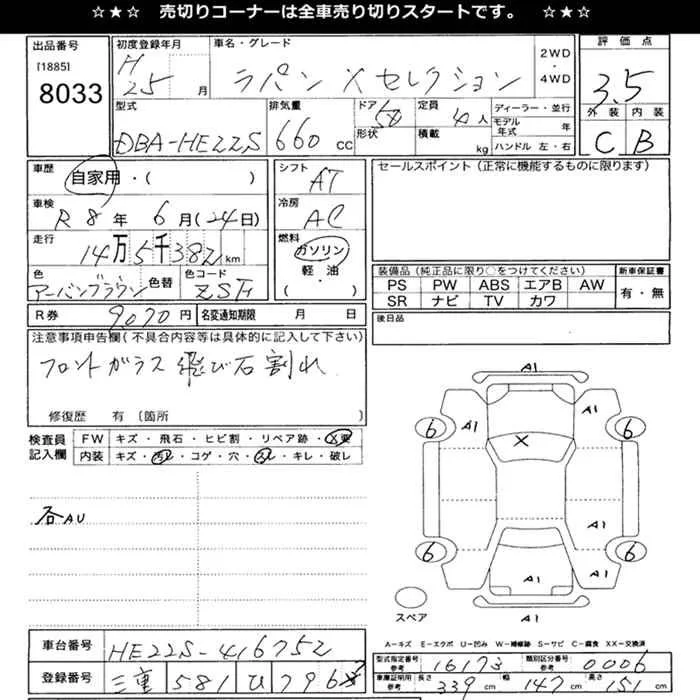 ☆★☆ 売切りコーナーは全車売り切りスタートです。 ☆★☆
出品番号 初度登録年月 車名・グレード 2WD・4WD 評価点
[1885] 8033 H25 月 ラパン Xセレクション 3.5
型式 排気量 ドア 形状 定員 積載 ディーラー・並行 外装 内装
DBA-HE22S 660 cc 5 4人 kg モデル年式 年 ハンドル 左・右 C B
車歴 自家用・( ) シフト AT セールスポイント(正常に機能するものに限ります)
車検 R8年6月(24日) 冷房 AC
走行 14万5千382km 燃料 ガソリン 軽・油
色 アーバンブラウン 色替 色コード ZSF
装備品(純正品に限り○をつけてください) 新車保証書
PS PW ABS エアB AW 有・無
SR ナビ TV カワ
R券 9070円 名変通知期限 月 日 後日品
注意事項申告欄(不具合内容等は具体的に記入して下さい)
フロントガラス飛び石割れ
修復歴 有(箇所 )
検査員記入欄 FW キズ・飛石・ヒビ割・リペア跡・X要
内装 キズ・汚レ・コゲ・穴・スレ・キレ・破レ
各AU
A1
6 A1 A1 6
X
A1
6 A1 6
A1
A1
スペア
A-キズ E-エクボ U-凹み W-補修跡 S-サビ C-腐食 XX-交換済
車台番号 HE22S-416752 型式指定番号 参考 16173 類別区分番号 参考 0006
登録番号 三重 581 ひ 796 車庫証明用 参考 長さ 339 cm 幅 147 cm 高さ 151 cm